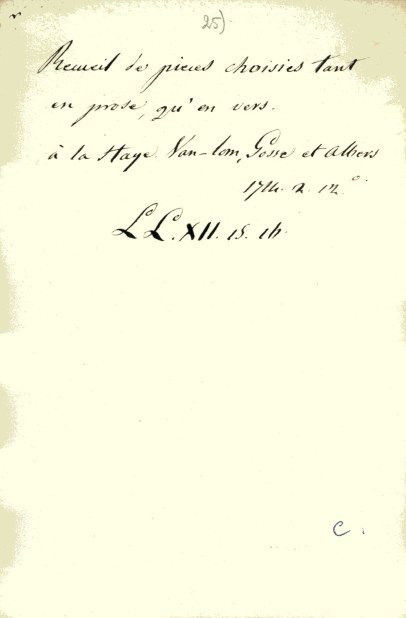 25)
Recueil de pieces choisies tant
en prose, qu'en vers.
à la Haye. Van-lom, Gosse et Albers
1714. 2. 12.º
LL. XII. 15. 16.
C.